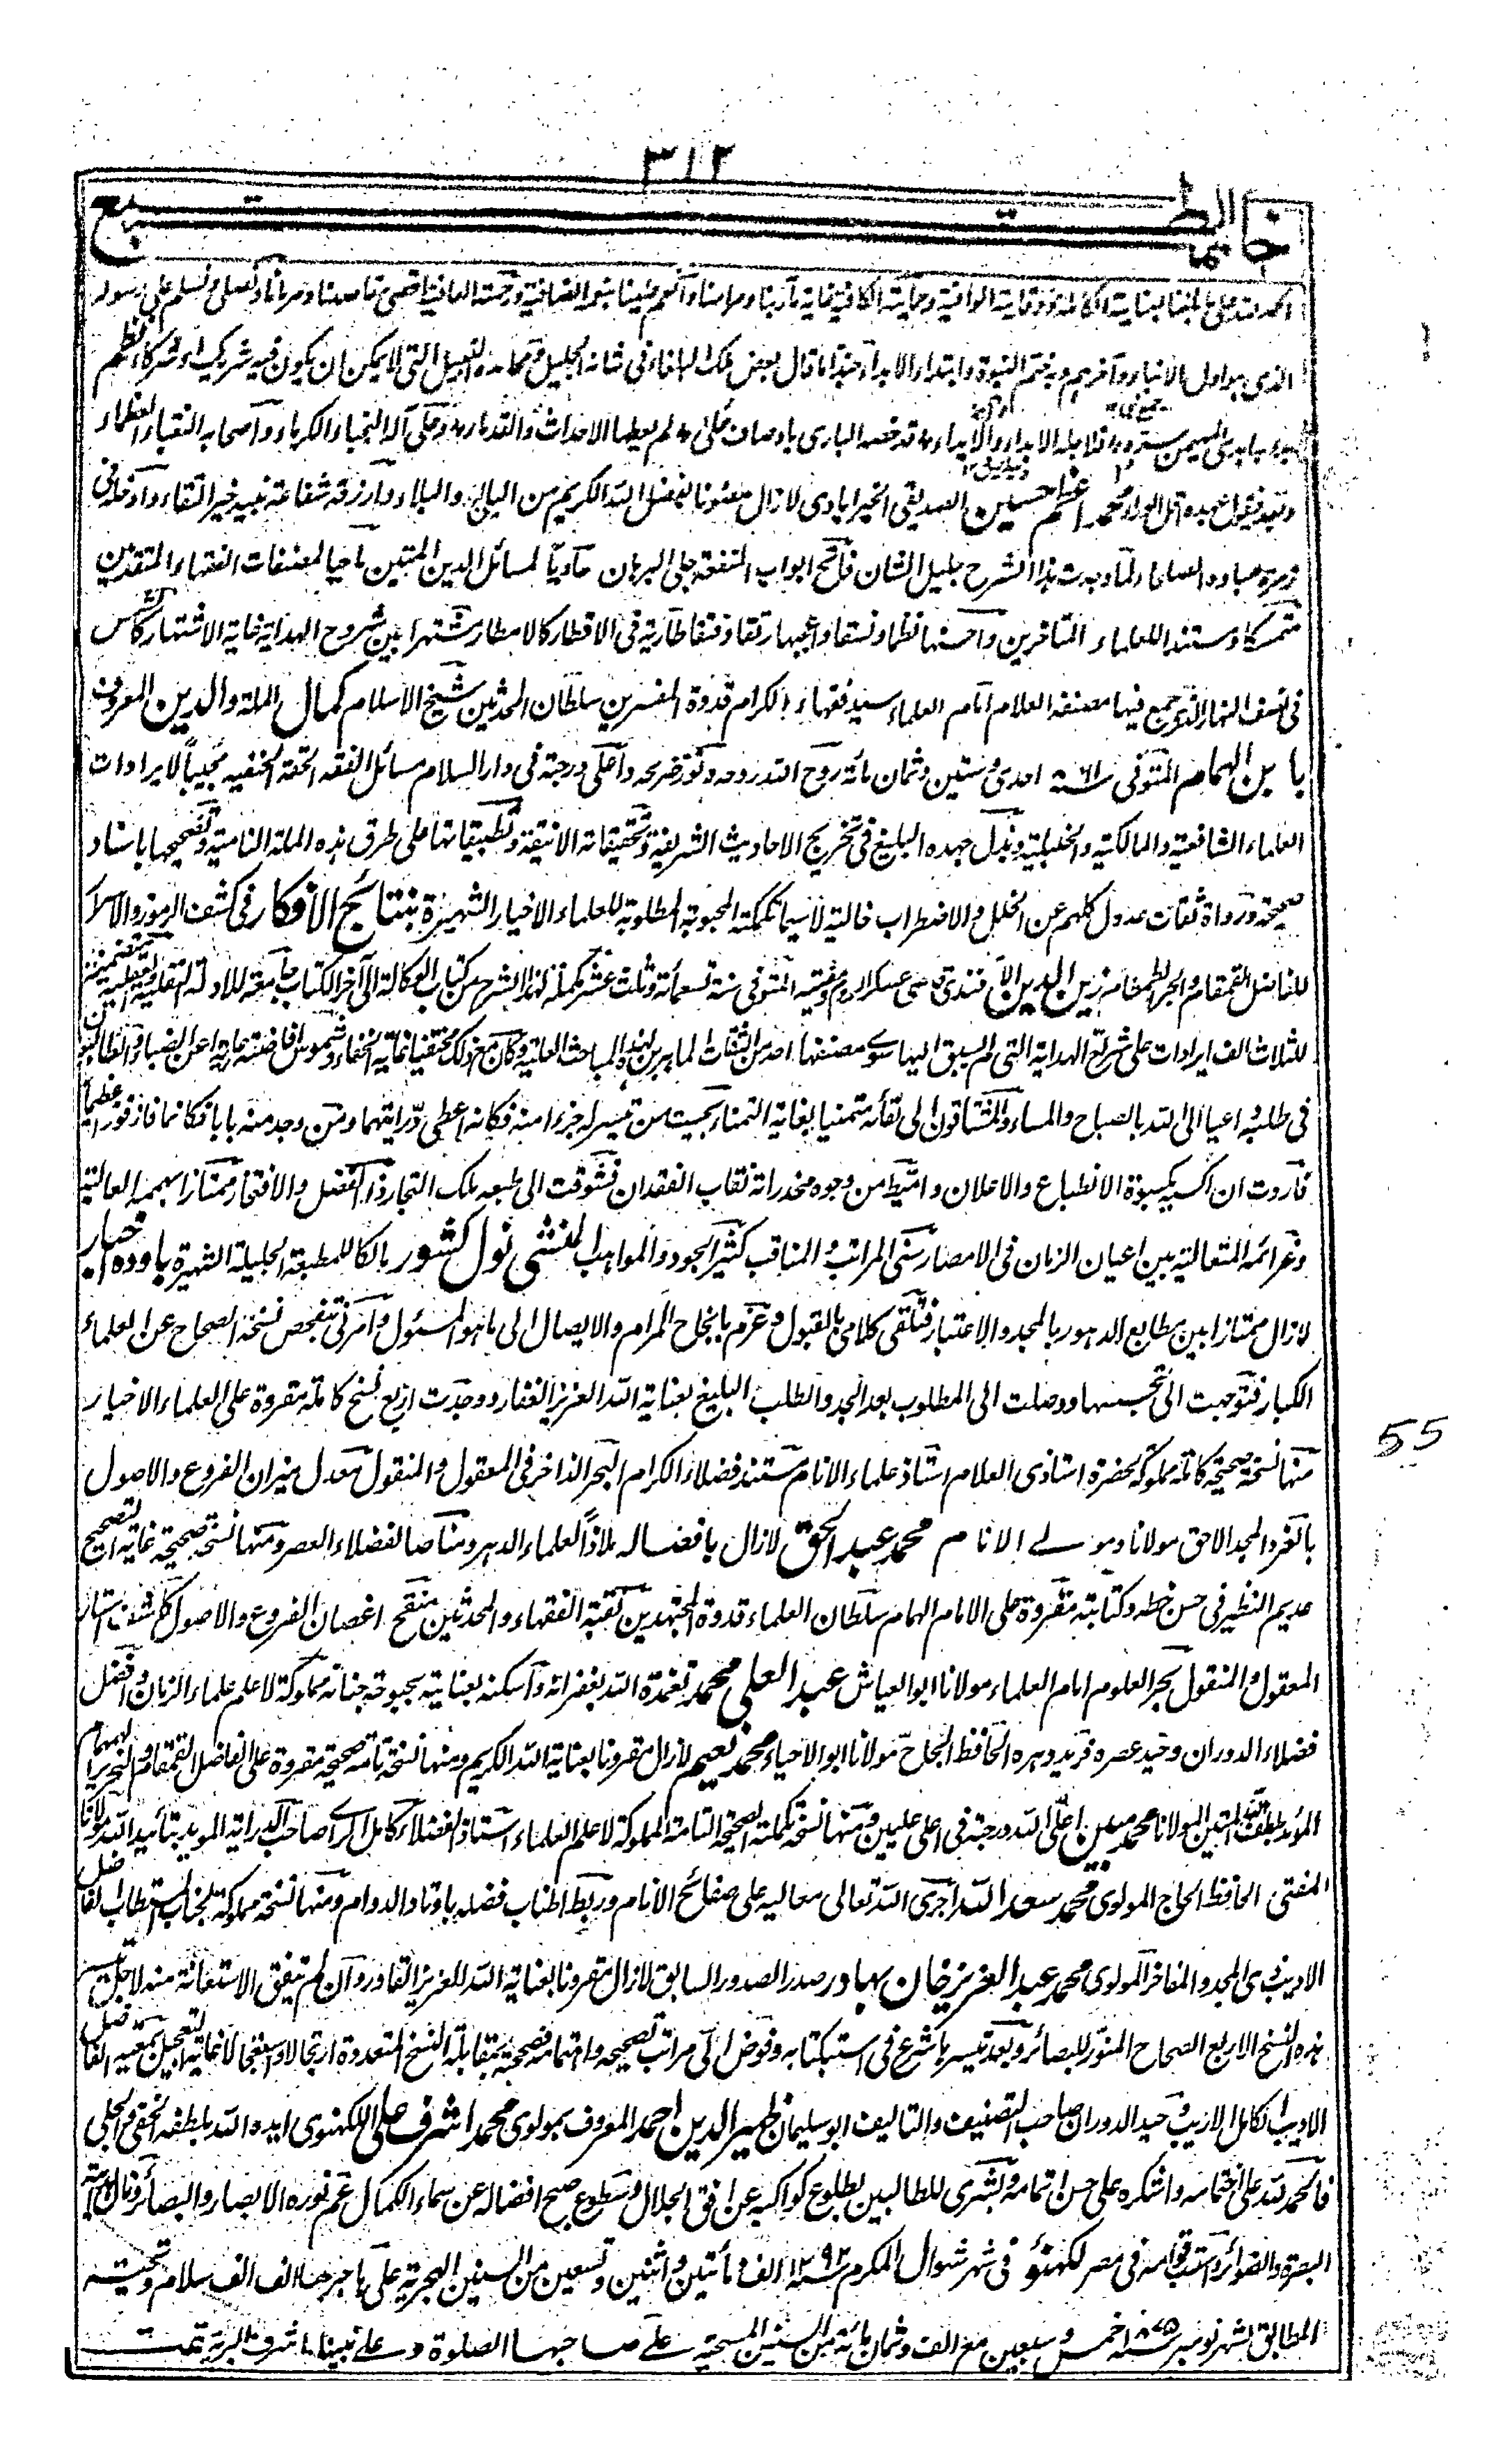 ٣١٢
خاتمة الطبع
الحمد لله على ما بلغنا بعنايته الكاملة ووقايته الوافية وحمايته الكافية غاية مآربنا ومرامنا
الذى هو اول الانبياء وآخرهم وبه ختم النبوة وابتداء الابداء حبذا ما قال بعض تلك البلغاء فى شانه الجليل ومحامده النبيل التى لا يمكن ان يكون فيه شريك او شركاء نظم
قد خصه البارى باوصاف على لم يعطها الاحداث والقدماء وعلى آله النجباء الكرماء واصحابه النقباء العظماء
وبعد فيقول عبده محمد اعظم حسين الصديقى الخيرابادى لا زال مصئونا بفضل الله الكريم من البلايا وارزقه شفاعة نبيه خير الشفعاء وادخله فى
زمرة عباده الصلحاء لما وجدت هذا الشرح جليل الشان فاتح ابواب التفقه جلى البرهان حاويا لمسائل الدين المتين ماحيا لمصنفات الفقهاء المتقدمين
متمسكا ومستندا للعلماء المتاخرين واحسنها نظما ونسقا طارية فى الاقطار كالامطار مشتهرا بين شروح الهداية غاية الاشتهار كالشمس
فى نصف النهار الذى جمع فيها مصنفه العلام امام العلماء سيد فقهاء الكرام قدوة المفسرين سلطان المحدثين شيخ الاسلام كمال الملة والدين المعروف
بابن الهمام المتوفى سنة ٨٦١ احدى وستين وثمان مائة روح الله روحه ونور ضريحه واعلى درجته فى دار السلام مسائل الفقه الحقة الحنفيه مجيبا لايرادات
العلماء الشافعية والمالكية والحنبلية وبذل جهده البليغ فى تخريج الاحاديث الشريفة وتحقيقاته الانيقة وتطبيقاتها على طرق هذه الملة النامية وتصحيحها باسناد
صحيحة ورواة ثقات عدول كلهم عن الخلل والاضطراب خالية لا سيما تكملته المحبوبة المطلوبة للعلماء الاخيار الشهيرة بنتائج الافكار فى كشف الرموز والاسرار
للفاضل القمقام والحبر الطمطام زين الدين الآفندى قاضى عسكر الروم ومفتيه المتوفى سنة تسعمائة تكملة لهذا الشرح من كتاب الوكالة الى آخر الكتاب جامعة للادلة النقلية
للثلاث الف ايرادات على شرائع الهداية التى لم يسبق اليها سوى مصنفها احد من الثقات الماهرين لهذه المباحث العلية وكان مع ذلك مختفيا غاية الخفاء
فى طلبه داعيا الى الله بالصباح والمساء والمشتاقون الى لقائه متمنيا بغاية التمناء بحيث من تيسر له جزءا منه فكانه اعطى ومن وجد منه بابا فكانما فاز فوزا عظيما
فاردت ان اكسيه بكسوة الانطباع والاعلان واميط من وجوه مخدراته نقاب الفقدان فشوقت الى طبعه ملك التجار ذا الفضل والافتخار ممتازا بهممه العالية
وعزائمه المتعالية بين اعيان الزمان فى الامصار سنى المراتب المناقب كثير الجود والمواهب المنشى نول كشور مالكا للمطبعة الجليلة الشهيرة باوده اخبار
لا زال ممتازا بين مطابع الدهور بالمجد والاعتبار فتلقى كلامى بالقبول وعزم بانجاح المرام والايصال الى ما هو المسئول وامرنى بتفحص نسخة الصحاح عن العلماء
الكبار فتوجهت الى تجسسها ووصلت الى المطلوب بعد الجد والطلب البليغ بعناية الله العزيز الغفار ووجدت اربع نسخ كاملة مقروة على العلماء الاخيار
منها نسخة صحيحة كاملة مملوكة لحضرة استاذى العلام استاذ علماء الانام مستند فضلاء الكرام البحر الذاخر فى المعقول والمنقول معدل ميزان الفروع والاصول
مولانا ومولے الانام محمد عبد الحق لا زال بافضاله ملاذا لعلماء الدهر ومناصا لفضلاء العصر ومنها نسخة صحيحة غاية التصحيح
عديم النظير فى حسن خطه وكتابته مقروة على الامام الهمام سلطان العلماء قدوة المجتهدين نقبة الفقهاء والمحدثين منقح اغصان الفروع والاصول كاشف استار
المعقول والمنقول بحر العلوم امام العلماء مولانا ابو العياش عبد العلى محمد تغمده الله بغفرانه واسكنه بعنايته بحبوحة جنانه مملوكة لاعلم علماء الزمان وافضل
فضلاء الدوران وحيد عصره فريد دهره الحافظ الحاج مولانا ابو الاحياء محمد نعيم لا زال مقرونا بعناية الله الكريم ومنها نسخة تامة صحيحة مقروة على الفاضل القمقام والنحرير الهمام
المولانا محمد مبين اعلى الله درجته فى اعلى عليين ومنها نسخة تكملته الصحيحة التامة المملوكة لاعلم العلماء استاذ الفضلاء صاحب الدراية المويد بتائيد الله مولانا
المفتى الحافظ الحاج المولوى محمد سعد الله اجرى الله تعالى معاليه على صفائح الانام وربط اطناب فضله باوتاد الدوام ومنها نسخة مملوكة لجناب المستطاب الفاضل
الاديب ذى المجد والمفاخر المولوى محمد عبد العزيز خان بهادر صدر الصدور السابق لا زال مقرونا بعناية الله العزيز القادر وان لم يتفق الاستعانة منه
هذه النسخ الاربع الصحاح المنور للبصائر وبعد تيسر ما شرع فى استكتابه وفوض الى مراتب تصحيحه واهتمامه فصححته بمقابلة النسخ المتعددة ارتجالا واستعجالا غاية التعجيل بمعية الفاضل
الاديب الكامل الاريب وحيد الدوران صاحب التصنيف والتاليف ابو سليمان ظهير الدين احمد المعروف بمولوى محمد اشرف على اللكهنوى ايده الله بلطفه الخفى والجلى
فالحمد لله على اختتامه واشكره على حسن اتمامه وبشرى للطالبين بطلوع كواكبه عن افق الجلال وسطوع صبح افضاله عن سماء الكمال عم نوره الابصار والبصائر
فى مصر لكهنؤ فى شهر شوال المكرم سنة ١٢٩٢ الف ومأتين واثنين وتسعين من السنين الهجرية على هاجرها الف الف سلام وتحية
المطابق لشهر نومبر سنة ١٨٧٥ خمس وسبعين مع الف وثمان مائة من السنين المسيحية علے صاحبها الصلوة وعلے نبينا اشرف البرية تمت
55